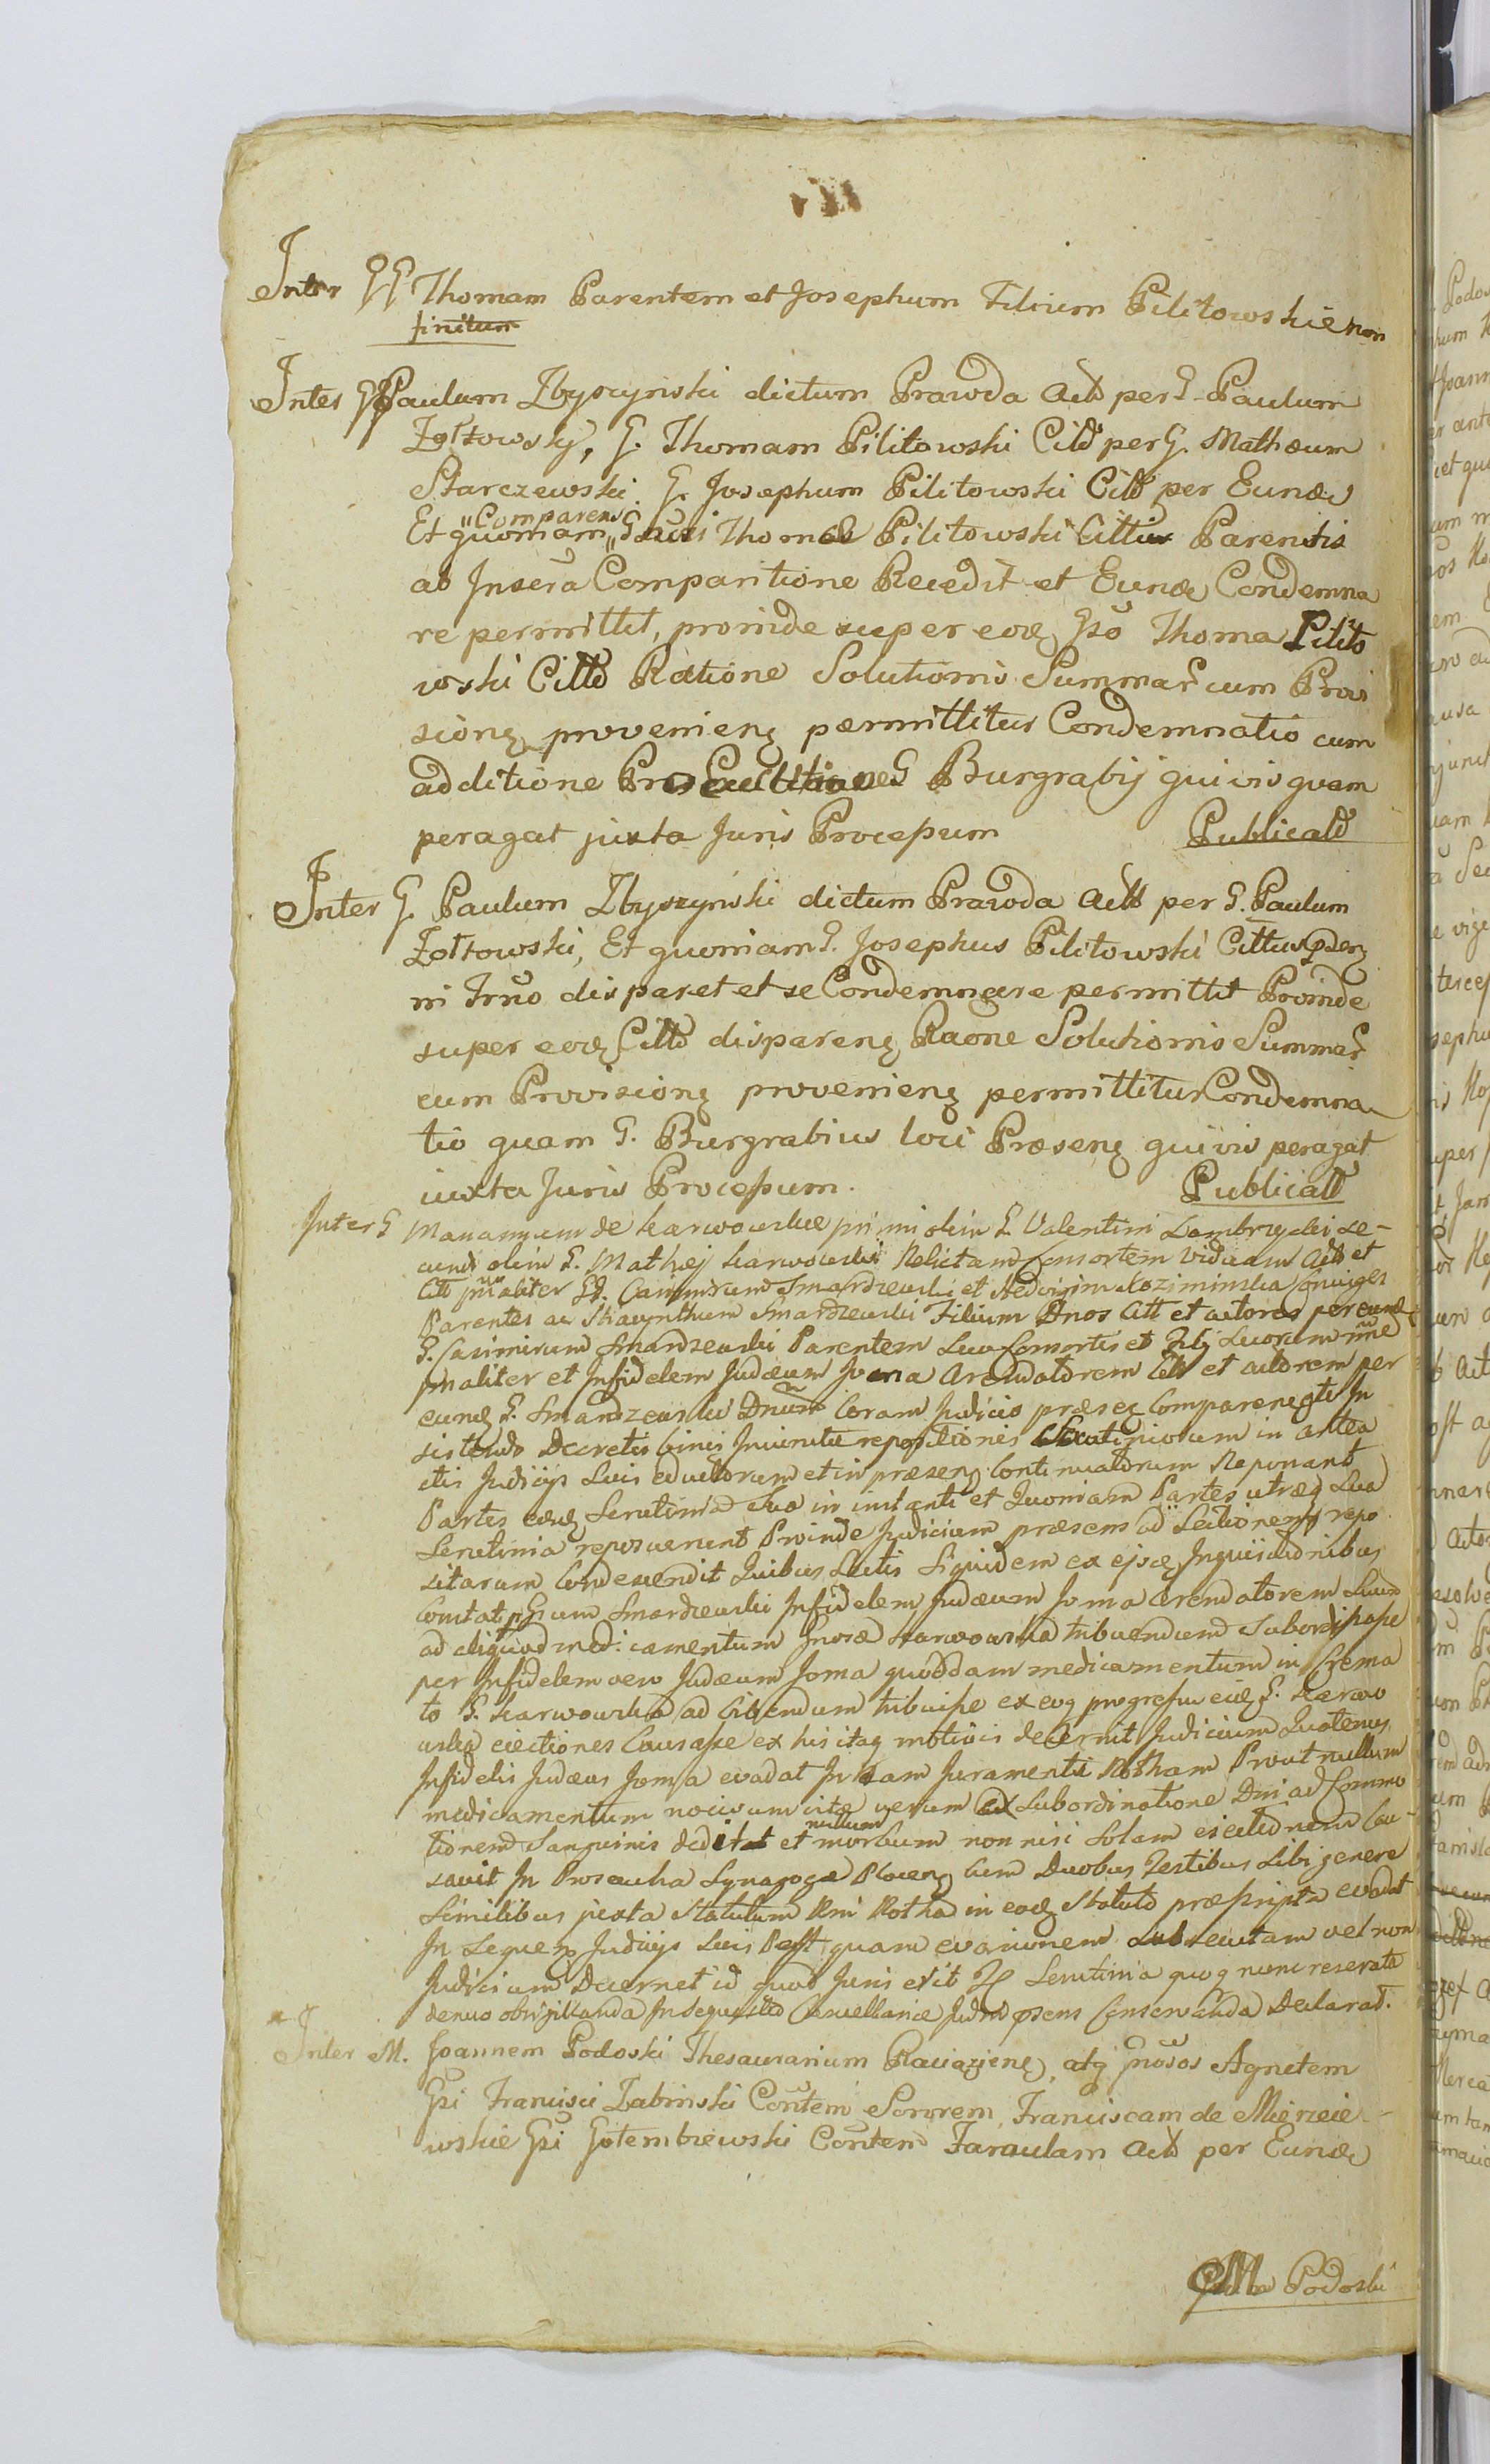 Inter GG Thomam Parentem et Josephum Filium Pilitowskie non
finitum
Inter G Paulum Zbyszyński dictum Prawda Actt per G. Paulum
Zołtowskj, G. Thomam Pilitowski Citt per G. Mathæum
Starczewski. G. Josephum Pilitowski Citt per Eunde
Et quoniam Comparens Gnusi Thomæ Pilitowski Citti Parentis
ab Inserta Comparitione Recedit et Eunde Condemna
re permittit, proinde super eode Gso Thoma Pilito
wski Citto Ratione Solutionis Summar cum Provi
sione provenien permittitur Condemnatio cum
additione Pro Executione G Burgrabij quivis quam
peragat juxta Juris Processum Publicatt
Inter G. Paulum Zbyszyński dictum Prawda Actt per G. Paulum
Zołtowski, Et quoniam G. Josephus Pilitowski Cittus psen
in Trno disparet et se Condemnare permittit Proinde
super eode Citto disparen Raone Solutionis Summar
cum Provisione provenien permittitur Condemna
tio quam G. Burgrabius loci Præsen quivis peragat
iuxta Juris Processum. Publicatt
Inter G Mariannam de Karwowskie primi olim G. Valentini Dembrzycki se-
cundi olim G. Mathej Karwowski Relictam Consortem Viduam Actt et
Citt prnaliter GG. Casimirum Smardzewski et Hedvigim Koziminska Conjuges
Parentes ac Hiacynthum Smardzewski Filium Dnos Citt et actores per eunde
G. Casimirum Smardzewski Parentem suo Consortis et Filij suorum nne
prnaliter et Infidelem Judæum Joma Arendatorem Citt et actorem per
eunde G. Smardzewski Dnum Coram Judicio præsen Comparente In
sistendo Decretis binis reposilionis Scrutiniorum in antea
ctis Judicijs suis eductorum et in præsen Continuatorum Reponant
Partes eade Scrutinia Sua in instanti et Quoniam Partes utræq Sua
Scrutinia reposuerunt Proinde Judicium præsens ad Lectionem repo
sitarum Condescendit Quibus Lectis Siquidem ex ejsde Inquisitionibus
Constat Gsum Smardzewski Infidelem Judæum Joma Arendatorem Suum
ad aliquod medicamentum Gnosæ Karwowska tribuendum Subordinasse
per Infidelem vero Judæum Joma quoddam medicamentum in Crema
to G. Karwowska ad bibendum tribuisse ex eoq progressu eide G. Karwo
wska eiectiones Causasse ex his itaq motivis decernit Judicium Quatenus
Infidelis Judæus Joma evadat Juratam Juramenti Rotham Prout nullum
medicamentum nocivum vitæ verum ex Subordinatione Dni ad Commo
tionem Sanguinis dedit et nullum morbum non nisi Solam eiectionem Cau-
savit In Proseucha Synagogæ Plocen Cum Duobus Testibus Sibi genere
Similibus juxta Statutum Rni Rotha in eode Statuto præscripta evadat
In Sequen Judicijs Suis Post quam evasionem Subsecutam vel non
Judicium Decernet id quod Juris erit Scrutinia quoq nunc reserata
denuo obsigillanda In Cancellaria Judm psens Conservanda Declarat.
Inter M. Joannem Podoski Thesaurarium Raciązien, atq Gnosos Agnetem
Gsi Francisci Zabinski Contem Sororem, Franciscam de Mierzeie-
wskie Gsi Gotembiewski Contem Famulam Actt per Eunde
Podoski